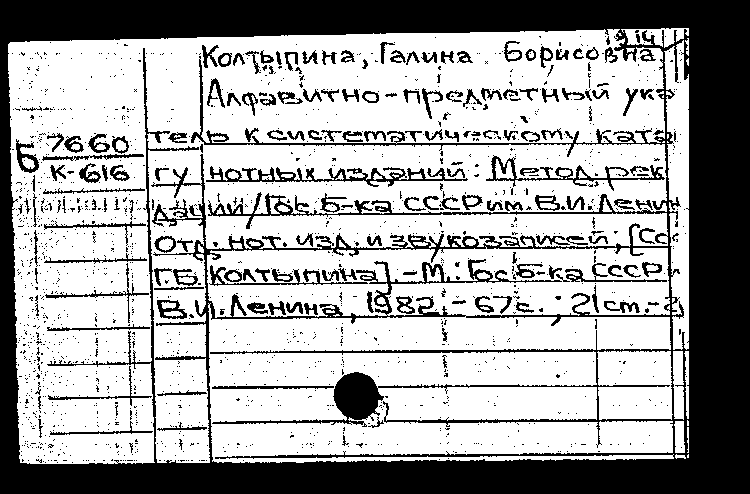 914
Колтыпина, Галина Борисовна
Алфавитно-предметный ука
Б 7660 К-616
тель к систематическому ката
гу нотных изданий: Метод. рек
дации / Гос. б-ка СССР им. В.И. Ленин
Отд. нот. изд. и звукозаписей; [Сос
Г.Б. Колтыпина]. - М.: Гос. б-ка СССР и
В.И. Ленина, 1982. - 67с.; 21 см. - 2